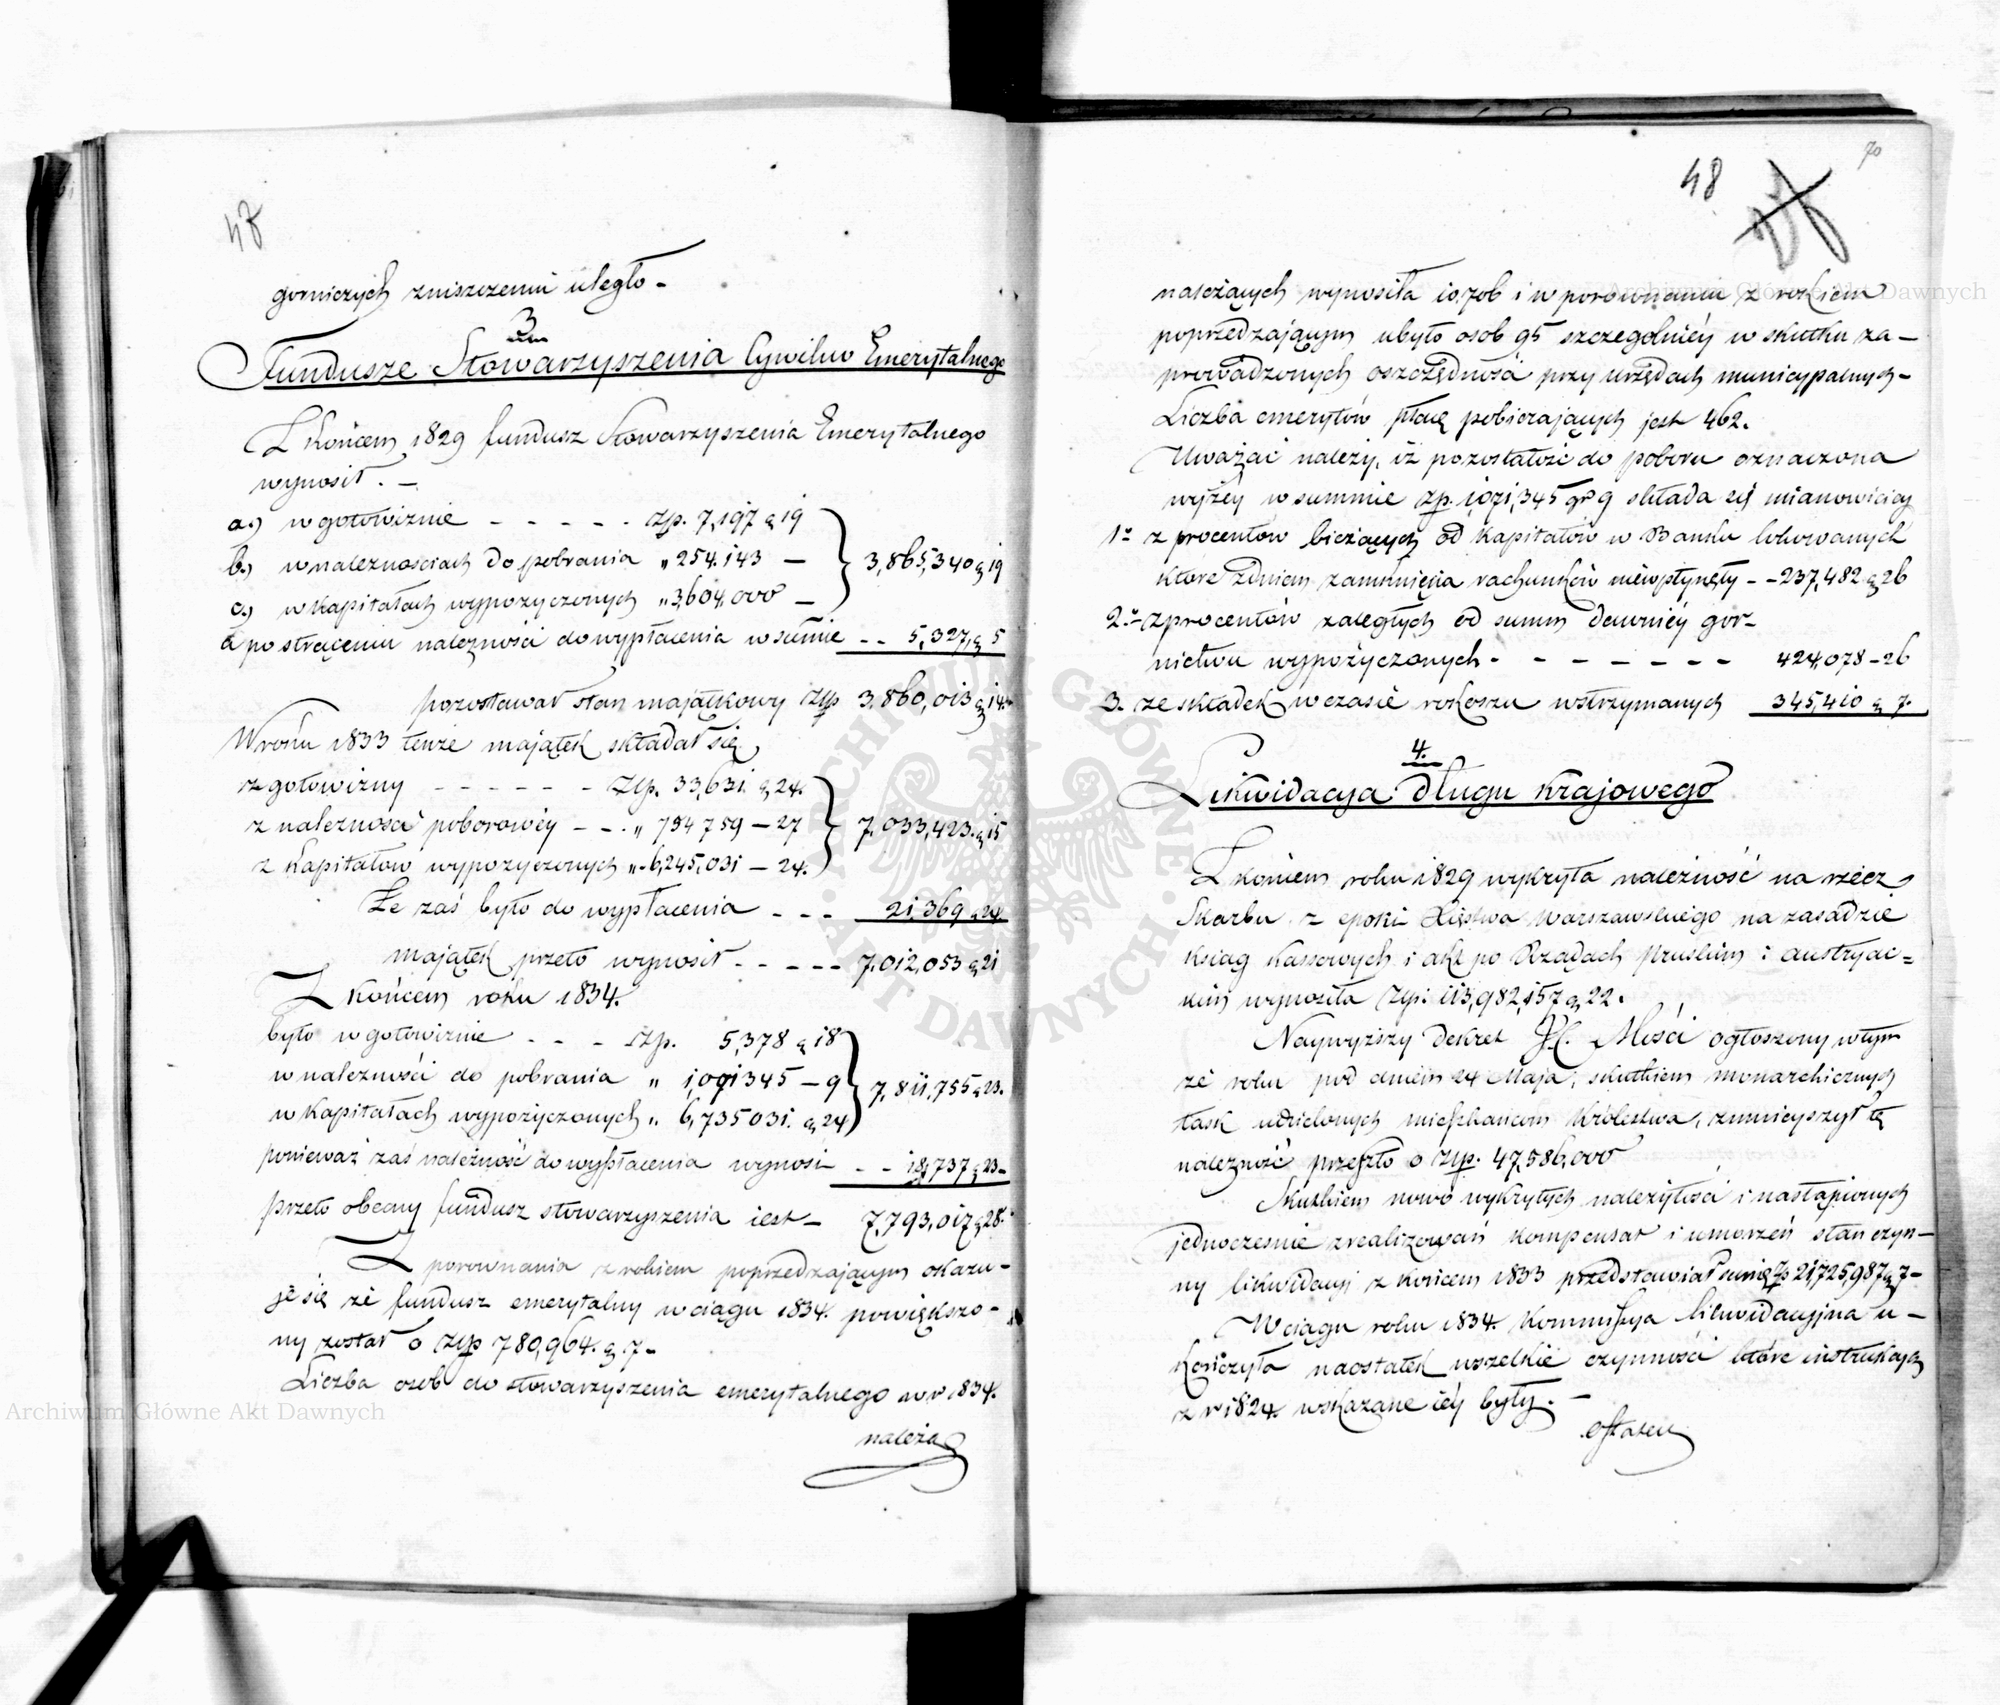 47
gorniczych zniszczeniu uległo -
3
Fundusze Stowarzyszenia Cywilno Emerytalnego
Z Końcem 1829 fundusz Stowarzyszenia Emerytalnego
wynosił. -
a.) w gotowiznie - - - - - Złp. 7,197 g 19
b.) w naleznosciach do pobrania " 254.143 -
3,865,340 g 19
c.) w Kapitałach wypozyczonych " 3,604,000 -
a po strąceniu należności do wypłacenia w summie - - 5,327, g 5
pozostawał stan majątkowy Złp 3,860,013 g 14
W roku 1833 tenże majątek składał się
z gotowizny - - - - - - Złp. 33,631. g 24.
z należności poborowéy - - . " 754 759 - 27
7,033,423. g 15
z Kapitałow wypozyczonych " 6,245,031 - 24.
Że zaś było do wypłacenia - - - 21,369 g 24
majątek przeto wynosił - - - - - 7,012,053 g 21
Z Końcem roku 1834.
było w gotowiznie - - - Złp. 5,378 g 18
w należności do pobrania " 1,071345 - 9
7,811,755 g 23.
w Kapitałach wypożyczonych " 6,735031. g 24
ponieważ zaś należność do wypłacenia wynosi - - 18,737 g 23 -
przeto obecny fundusz stowarzyszenia iest - 7,793,017 g 28.
Z porownania z rokiem poprzedzającym okazu-
je się że fundusz emerytalny w ciągu 1834. powiększo-
ny został o Złp 780,964. g 7 -
Liczba osob do stowarzyszenia emerytalnego w r 1834.
należą
48
70
należących wynosiła 10,706 i w porównaniu z rokiem
poprzedzającym ubyło osob 95 szczegolniéy w skutku za-
prowadzonych oszczędności przy urzędach municypalnych -
Liczba emerytów płacę pobierających jest 462.
Uważać należy, iż pozostałość do poboru oznaczona
wyżéy w summie Zp. 1071,345 gr 9 składa się mianowiciey
1° z procentów bieżących od Kapitałów w Banku lokowanych
które z dniem zamknięcia rachunków niewpłynęły - - 237,482 g 26
2° z procentów zaległych od summ dawniéy gor-
nictwu wypożyczonych - - - - - - - 424,078 - 26
3. ze składek w czasie rokoszu wstrzymanych 345,410 g 7.
4.
Likwidacya długu krajowego
Z końcem roku 1829 wykryta należność na rzecz
Skarbu z epoki Xięstwa Warszawskiego na zasadzie
ksiąg kassowych i akt po Rządach Pruskim i austryac=
kim wynosiła Złp: 113,982,157 g 22.
Naywyższy dekret J. C. Mości ogłoszony w tym
że roku pod dniem 24 Maja, skutkiem monarchicznych
łask udzielonych mieszkańcom Królestwa, zmnieyszył tę
należność przeszło o Złp. 47,586,000
Skutkiem nowo wykrytych należytości i nastąpionych
jednocześnie zrealizowań kompensat i umorzeń stan czyn-
ny likwidacyi z końcem 1833 przedstawiał summę Zp 21,725,987 g 7 -
W ciągu roku 1834. Kommissya likwidacyjna u-
kończyła naostatek wszelkie czynności które instrukcyą
z r 1824. wskazane iéy były. -
Archiwum Główne Akt Dawnych
Archiwum Główne Akt Dawnych
ARCHIWUM GŁÓWNE AKT DAWNYCH